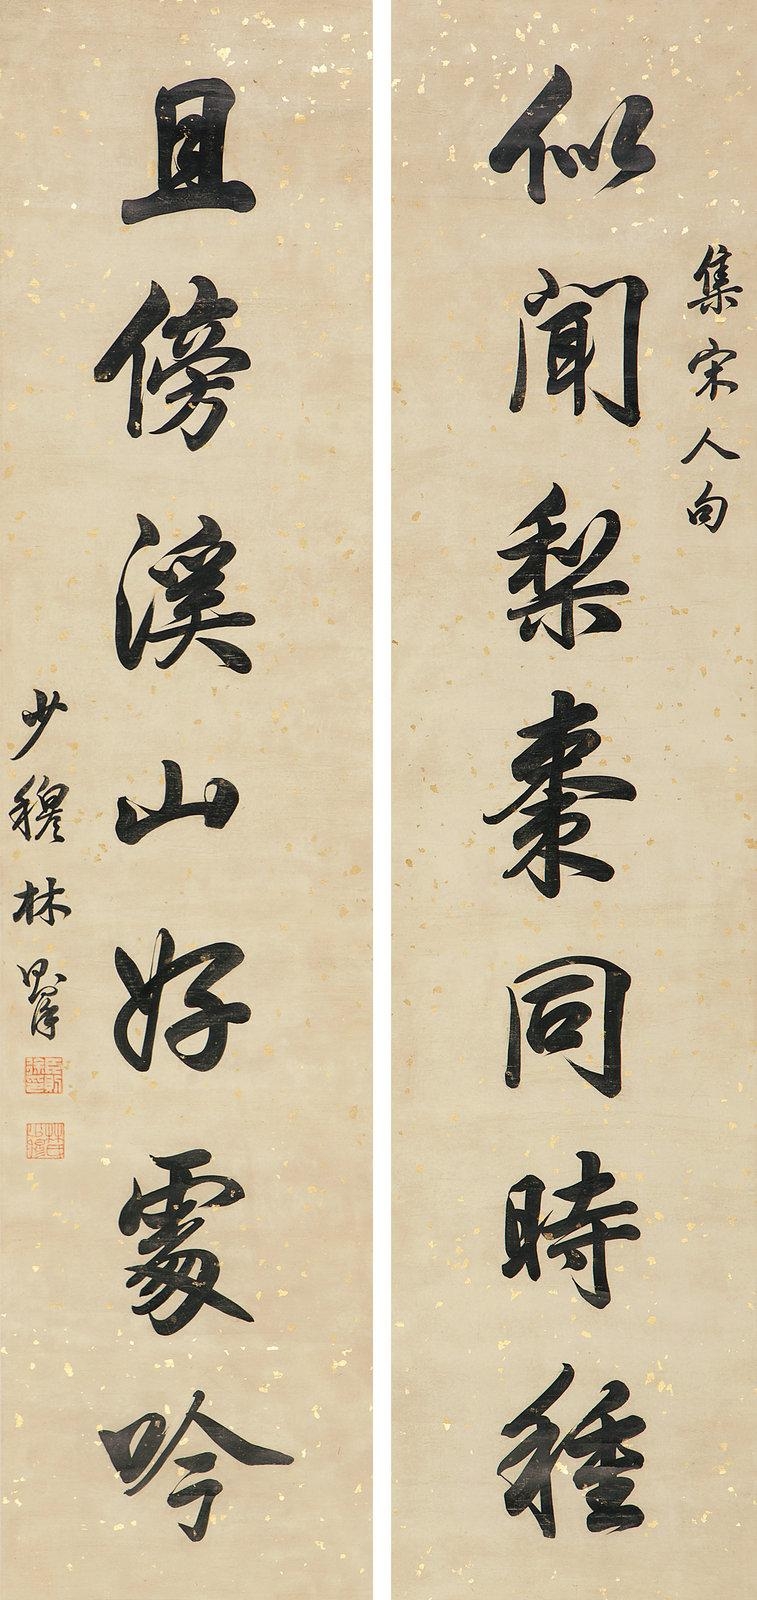 集宋人句
似聞梨棗同時種
且傍溪山好處吟
少穆林則徐